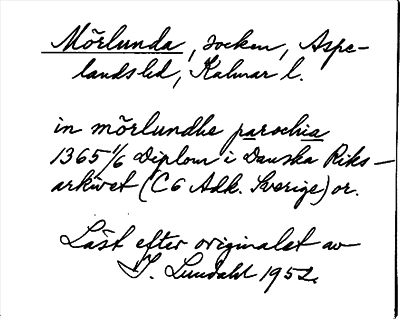 Mörlunda, socken, Aspe-
landshd, Kalmar l.
in mörlundhe parochia
1365 1/6 Diplom i Danska Riks-
arkivet (C6 Adk. Sverige) or.
Läst efter originalet av
I. Lundahl 1952.